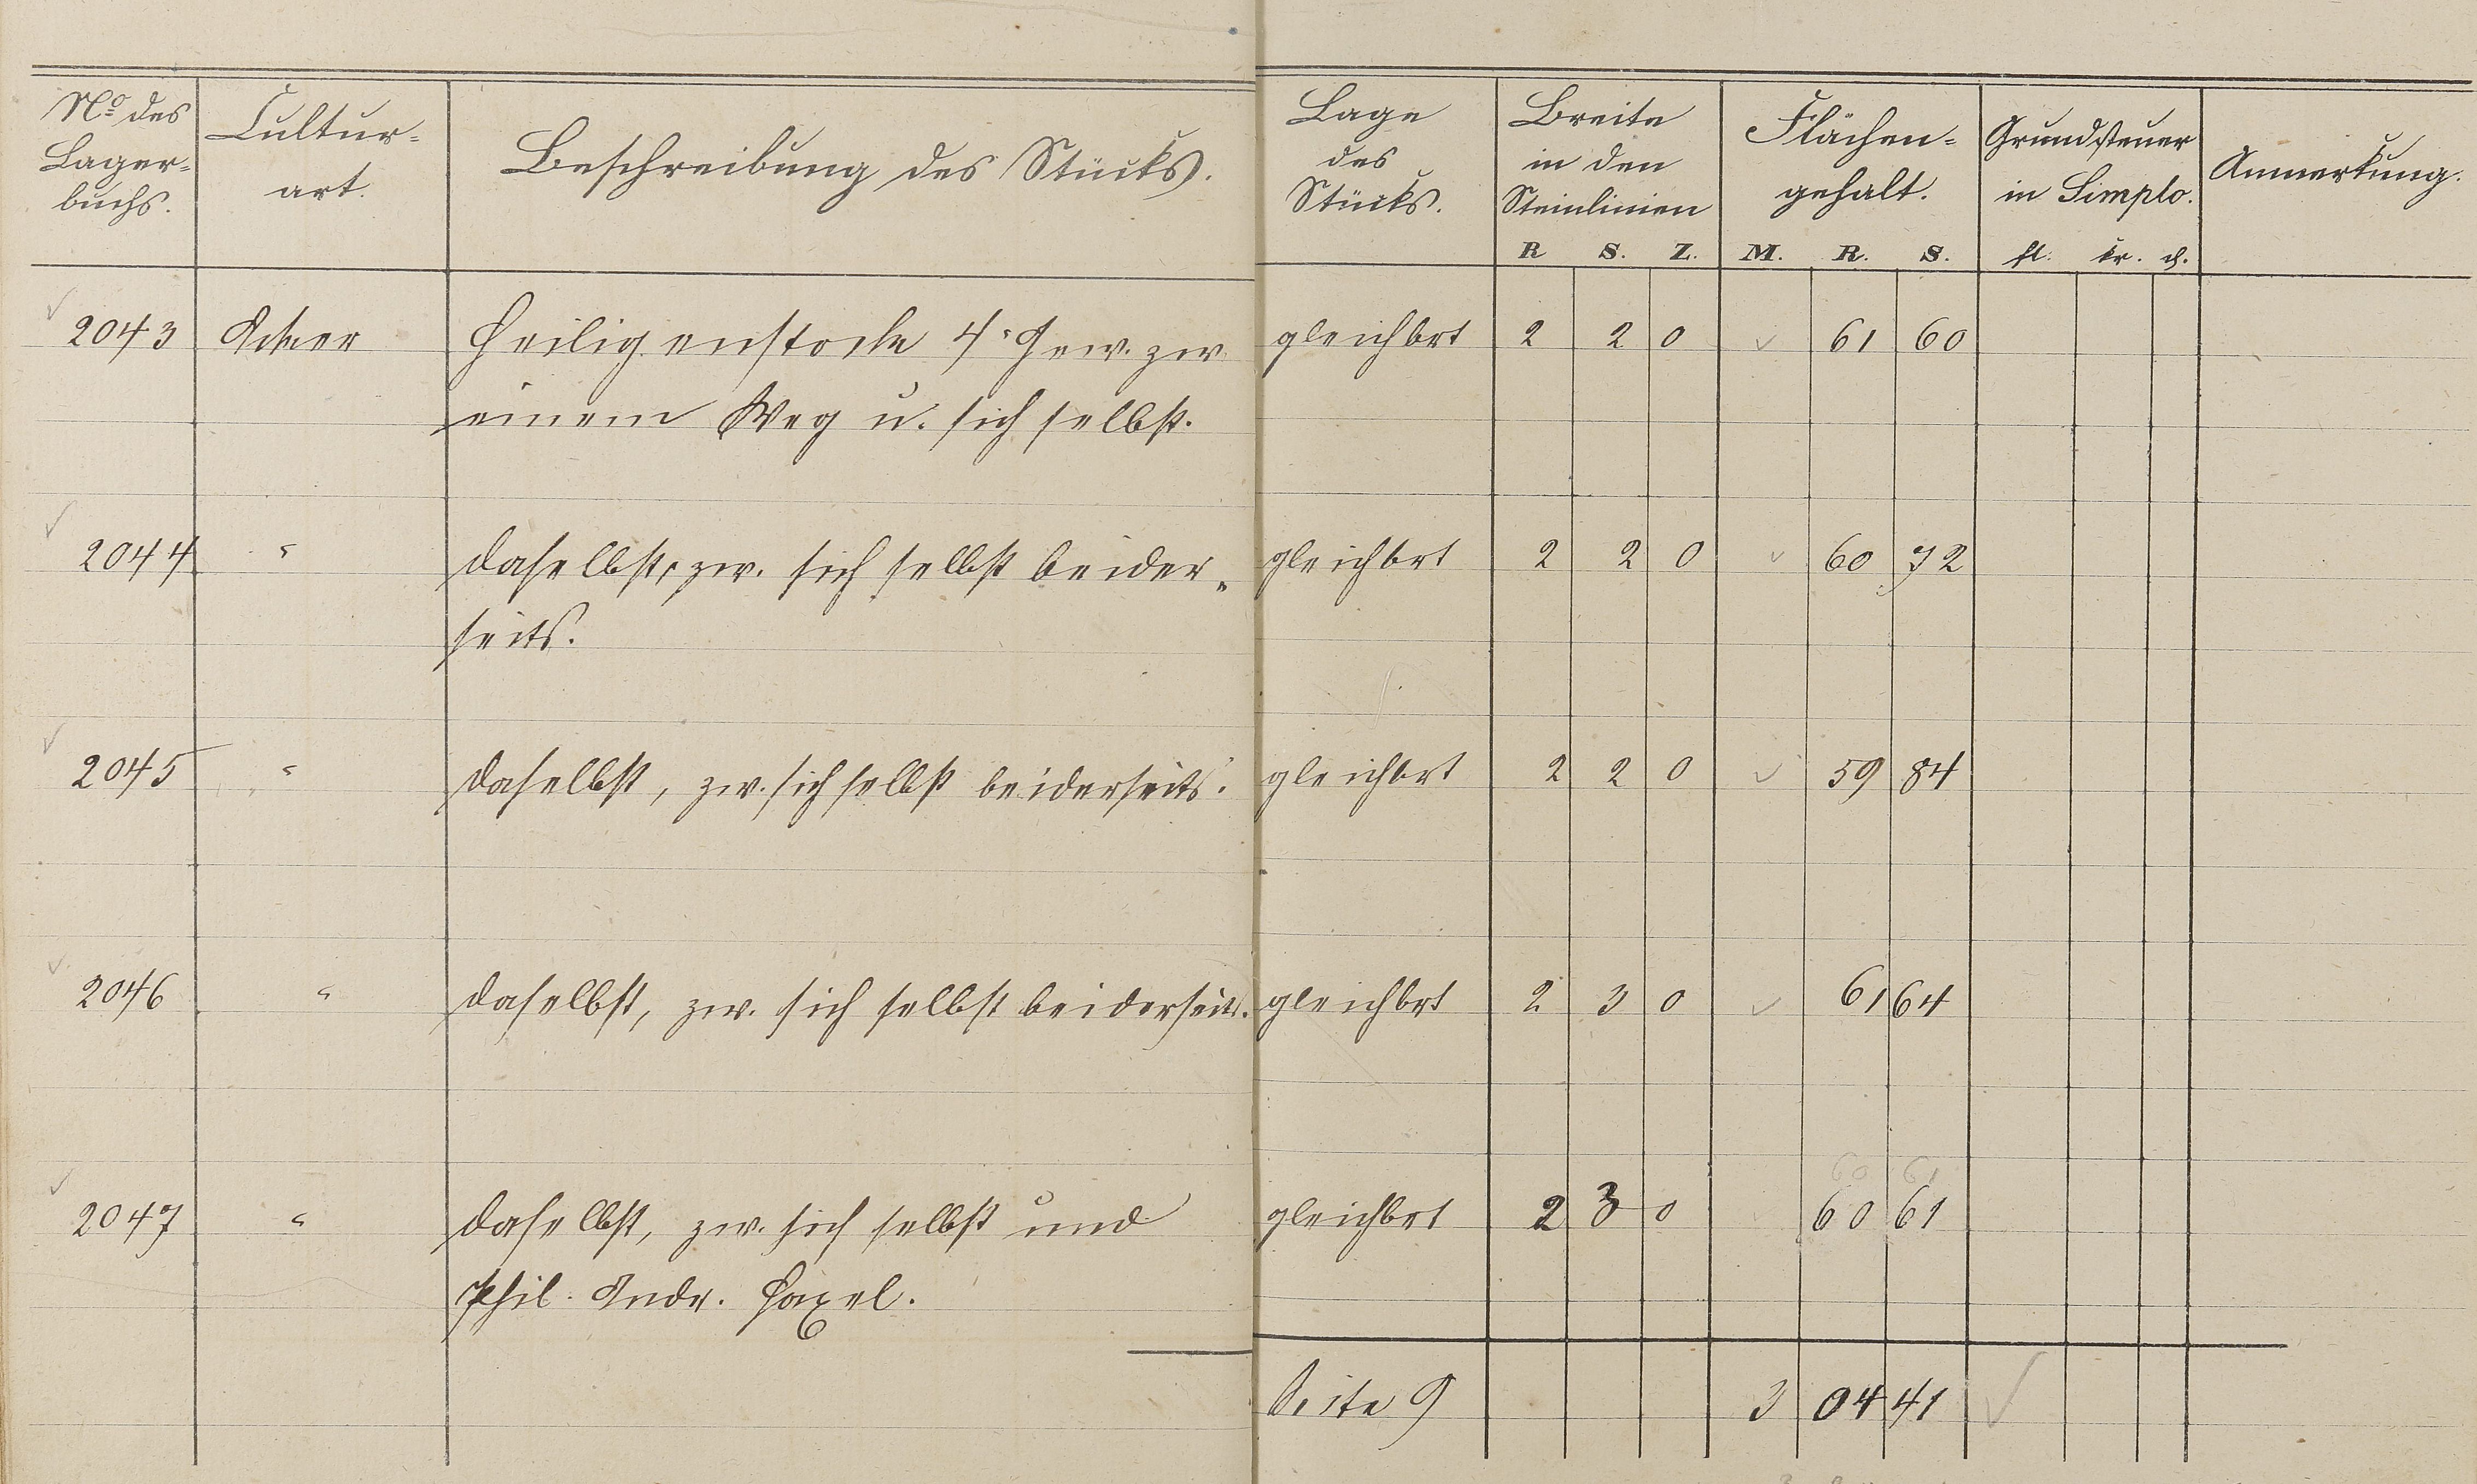 No des Lager-buchs.
Cultur-art.
Beschreibung des Stücks.
Lage des Stücks.
Breite in den Steinlinien
R S. Z.
Flächen-gehalt.
M. R. S.
Grundsteuer in Simplo.
fl. kr. d.
Anmerkung.
2043 Acker Heiligenstocke 4r Gew. zw. gleichbrt 2 2 0 61 60
einem Weg u. sich selbst.
2044 " daselbst, zw. sich selbst beider- gleichbrt 2 2 0 60 72
seits.
2045 " daselbst, zw. sich selbst beiderseits. gleichbrt 2 2 0 59 84
2046 " daselbst, zw. sich selbst beiderseits. gleichbrt 2 3 0 61 64
60 61
2047 " daselbst, zw. sich selbst und gleichbrt 2 3 0 60 61
Phil. Andr. Haxel.
Seite 9 3 04 41